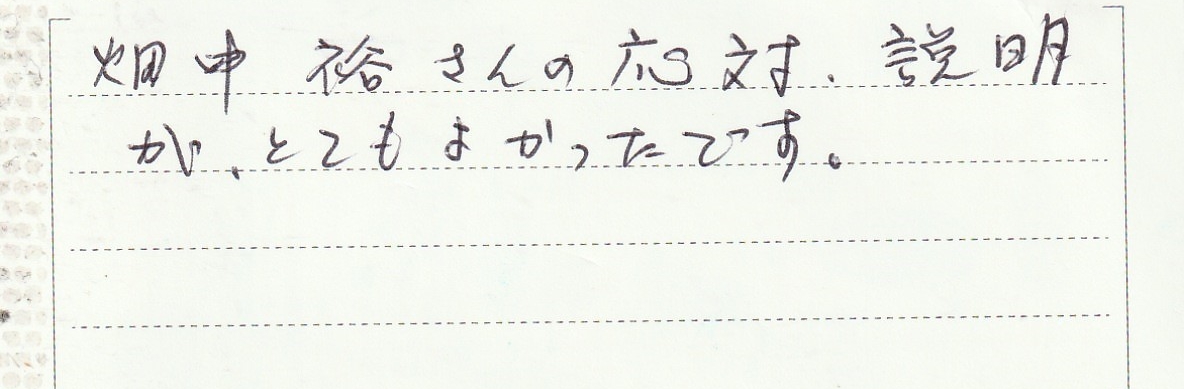 畑中 裕さんの応対、説明
が、とてもよかったです。